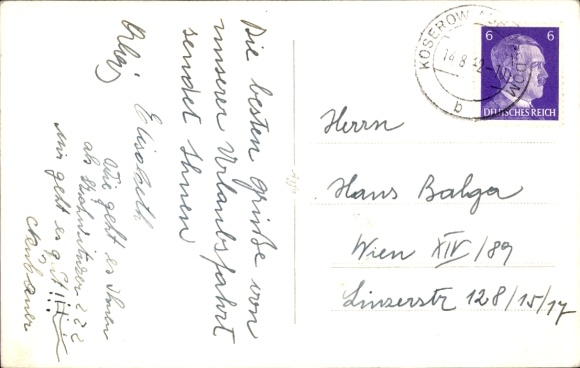 Die besten Grüße von
unserer Urlaubsfahrt
sendet Ihnen
Elisabeth
Wie geht es Ihnen
als Strohwitwer ???
mir geht es gut !!!
KOSEROW
14.8.42
b
6 6
DEUTSCHES REICH
Herrn
Hans Balga
Wien XIV/89
Linzerstr 128/15/17